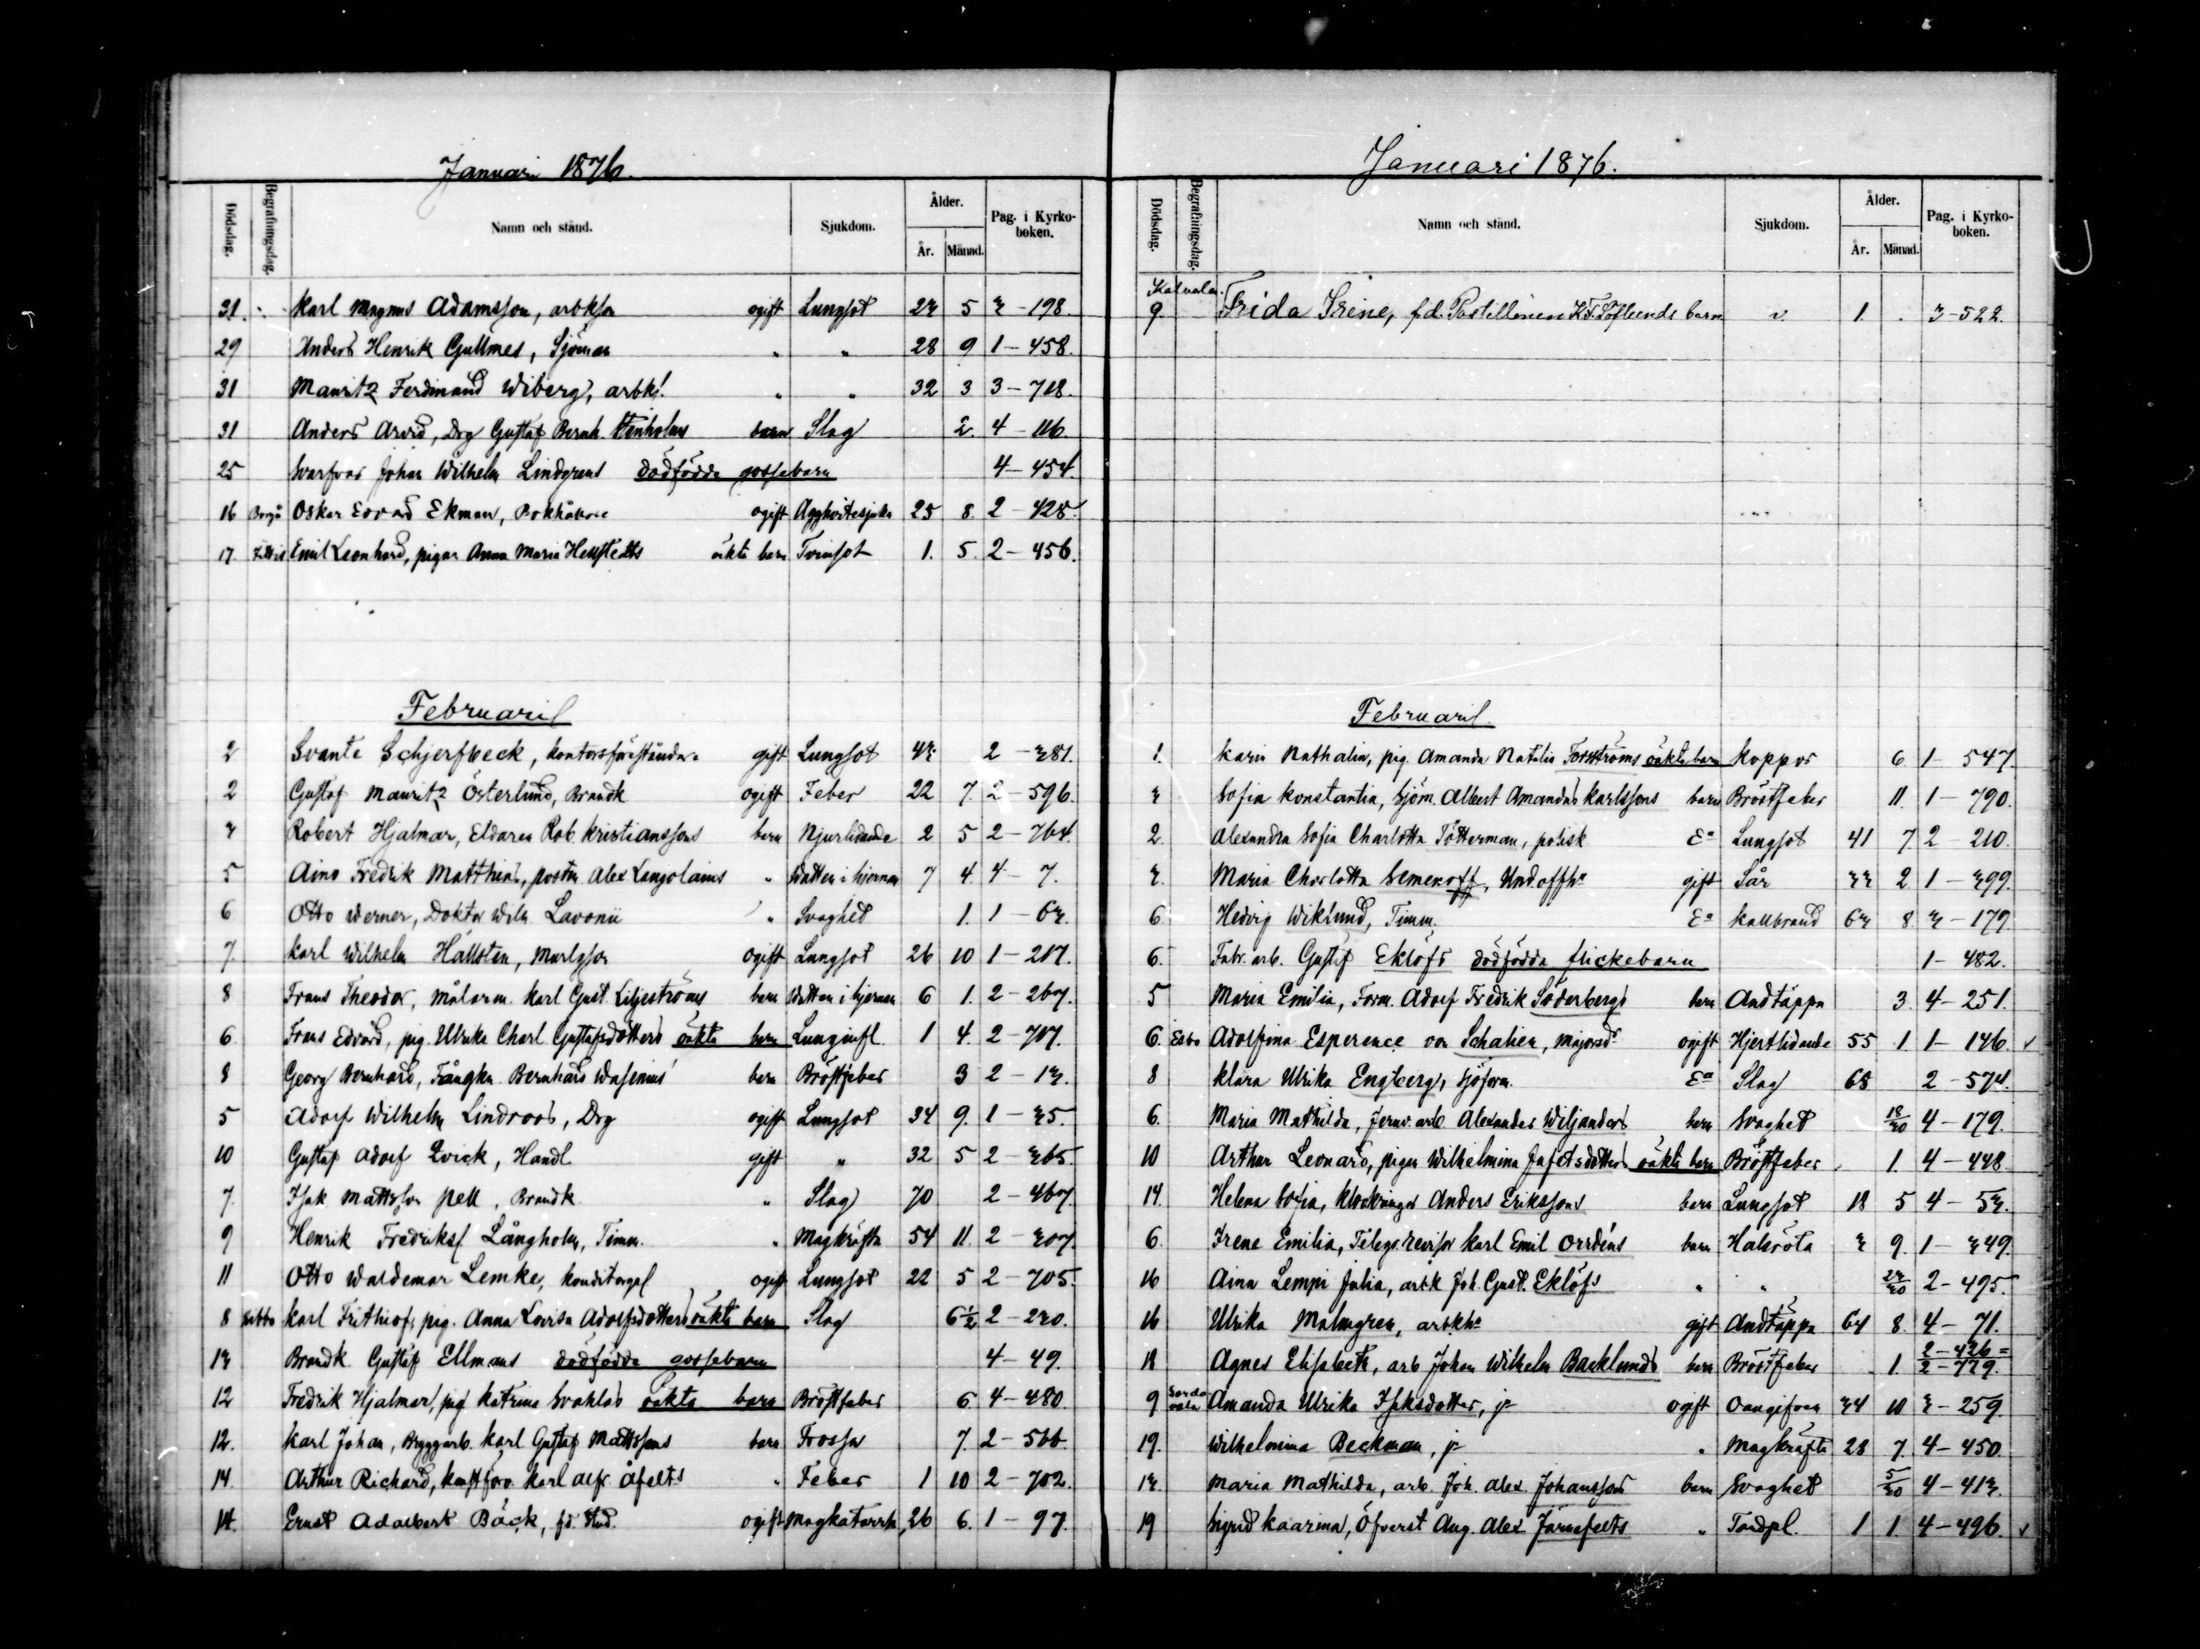 Januari 1876.
Dödsdag. Begrafningsdag. Namn och stånd. Sjukdom. Ålder. År. Månad. Pag. i Kyrkoboken.
31 Karl Magnus Adamsson, arbkson ogift Lungsot 23 5 3-198.
29 Anders Henrik Gullmes, Sjöman " " 28 9 1-458.
31 Mauritz Ferdinand Wiberg, arbk. " " 32 3 3-718.
31 Anders Arvid, Drg Gustaf Bernh. Stenholms barn Slag 2. 4-116.
25 Svarfvar Johan Wilhelm Lindgrens dödfödda gossebarn 4-454.
16 Borgå Oskar Edvard Ekman, Bokhållare ogift 25 8. 2-428.
17. Emil Leonhard, pigan Anna Maria Hellstedts oäkta barn Tvinsot 1. 5. 2-456.
Februari
2 Svante Schjerfbeck, kontorsföreståndare gift Lungsot 43 2-381.
2 Gustaf Mauritz Österlund, Brandk ogift Feber 22 7. 2-596.
3 Robert Hjalmar, Eldaren Rob. Kristianssons barn Njurlidande 2 5 2-764.
5 Aino Fredrik Matthias, Alex Langolains " Watten i hjernan 7 4. 4-7.
6 Otto Werner, Doktor Wilh Lavonii " Svaghet 1. 1-63.
7. Karl Wilhelm Hällsten, ogift Lungsot 26 10 1-217.
8 Frans Theodor, målarm. Karl Gust. Liljeströms barn Watten i hjernan 6 1. 2-267.
6 Frans Edvard, pig. Ulrika Charl Gustafsdotters oäkta barn Lunginfl. 1 4. 2-707.
8 Georg Bernhard, Fångkn. Bernhard Wasenius' barn Bröstfeber 3 2-13.
5 Adolf Wilhelm Lindroos, Drg ogift Lungsot 34 9. 1-35.
10 Gustaf Adolf Qvick, Handl gift " 32 5 2-365.
7. Isak Mattsson Pell, Brandk " Slag 70 2-467.
9 Henrik Fredriks Långholm, Timm. " Magkräfta 54 11. 2-307.
11 Otto Waldemar Lemke, konditorges ogift Lungsot 22 5 2-705.
8 Sibbo Karl Frithiof, pig. Anna Lovisa Adolfsdotters oäkta barn Slag 6½ 2-230.
13 Brandk. Gustaf Ellmans dödfödda gossebarn 4-49.
12 Fredrik Hjalmar, pig Katrina Svahlas oäkta barn Bröstfeber 6 4-480.
12. Karl Johan, Bryggarb. Karl Gustaf Mattssons barn Frossa 7. 2-566.
14 Arthur Richard, Karl Alfr. Åfelts " Feber 1 10 2-702.
14. Ernst Adalbert Bäck, fd. Stud. ogift Magkatarrh 26 6. 1-97.
Januari 1876.
Dödsdag. Begrafningsdag. Namn och stånd. Sjukdom. Ålder. År. Månad. Pag. i Kyrkoboken.
9 Frida Irene, f.d. Postillonen K. F. Toflunds barn 1. 3-522.
Februari
1. Karin Nathalia, pig. Amanda Natalia Forsströms oäkta barn koppor 6. 1-547.
3 Sofia Konstantia, Sjöm. Albert Amandus Karlssons barn Bröstfeber 11. 1-790.
2. Alexandra Sofia Charlotta Tötterman, Ea Lungsot 41 7. 2-210.
3. Maria Charlotta Semenoff, Undoffhu gift Sår 33 2 1-399.
6. Hedvig Wiklund, Timm. Ea Kallbrand 63 8. 3-179
6. Fabr. arb. Gustaf Eklöfs dödfödda flickebarn 1-482.
5 Maria Emilia, Form. Adolf Fredrik Söderbergs barn Andtäppa 3. 4-251.
6. Esbo Adolfina Esperence von Schalien, Majorsd. ogift Hjertlidande 55 1. 1-146.
8 Klara Ulrika Engberg, Sjöform. Ea Slag 68 2-574.
6. Maria Mathilda, Jernv. arb. Alexander Wiljanders barn Svaghet 18/30 4-179.
10 Arthur Leonard, pigan Wilhelmina Jafetsdotters oäkta barn Bröstfeber 1. 4-448.
14. Helena Sofia, Klockringar Anders Erikssons barn Lungsot 18 5 4-53.
6. Irene Emilia, Telegr. revisor Karl Emil Orrdéns barn Halsröta 3 9. 1-349.
16 Aina Lempi Julia, arbk Joh. Gust. Eklöfs " " 23/30 2-495.
16 Ulrika Malmgren, arbkhu gift Andtäppa 64 8. 4-71.
18 Agnes Elisabeth, arb. Johan Wilhelm Backlunds barn Bröstfeber 1. 2-426= 2-779.
9 Sordavala Amanda Ulrika Isaksdotter, pa ogift Oangifven 34 10 3-259.
19. Wilhelmina Beckman, pa " Magkräfta 28 7. 4-450.
13. Maria Mathilda, arb. Joh. Alex. Johanssons barn Svaghet 5/30 4-413.
19 Sigrid Kaarina, Öfverst Aug. Alex. Järnefelts " Tandpl. 1 1. 4-496.